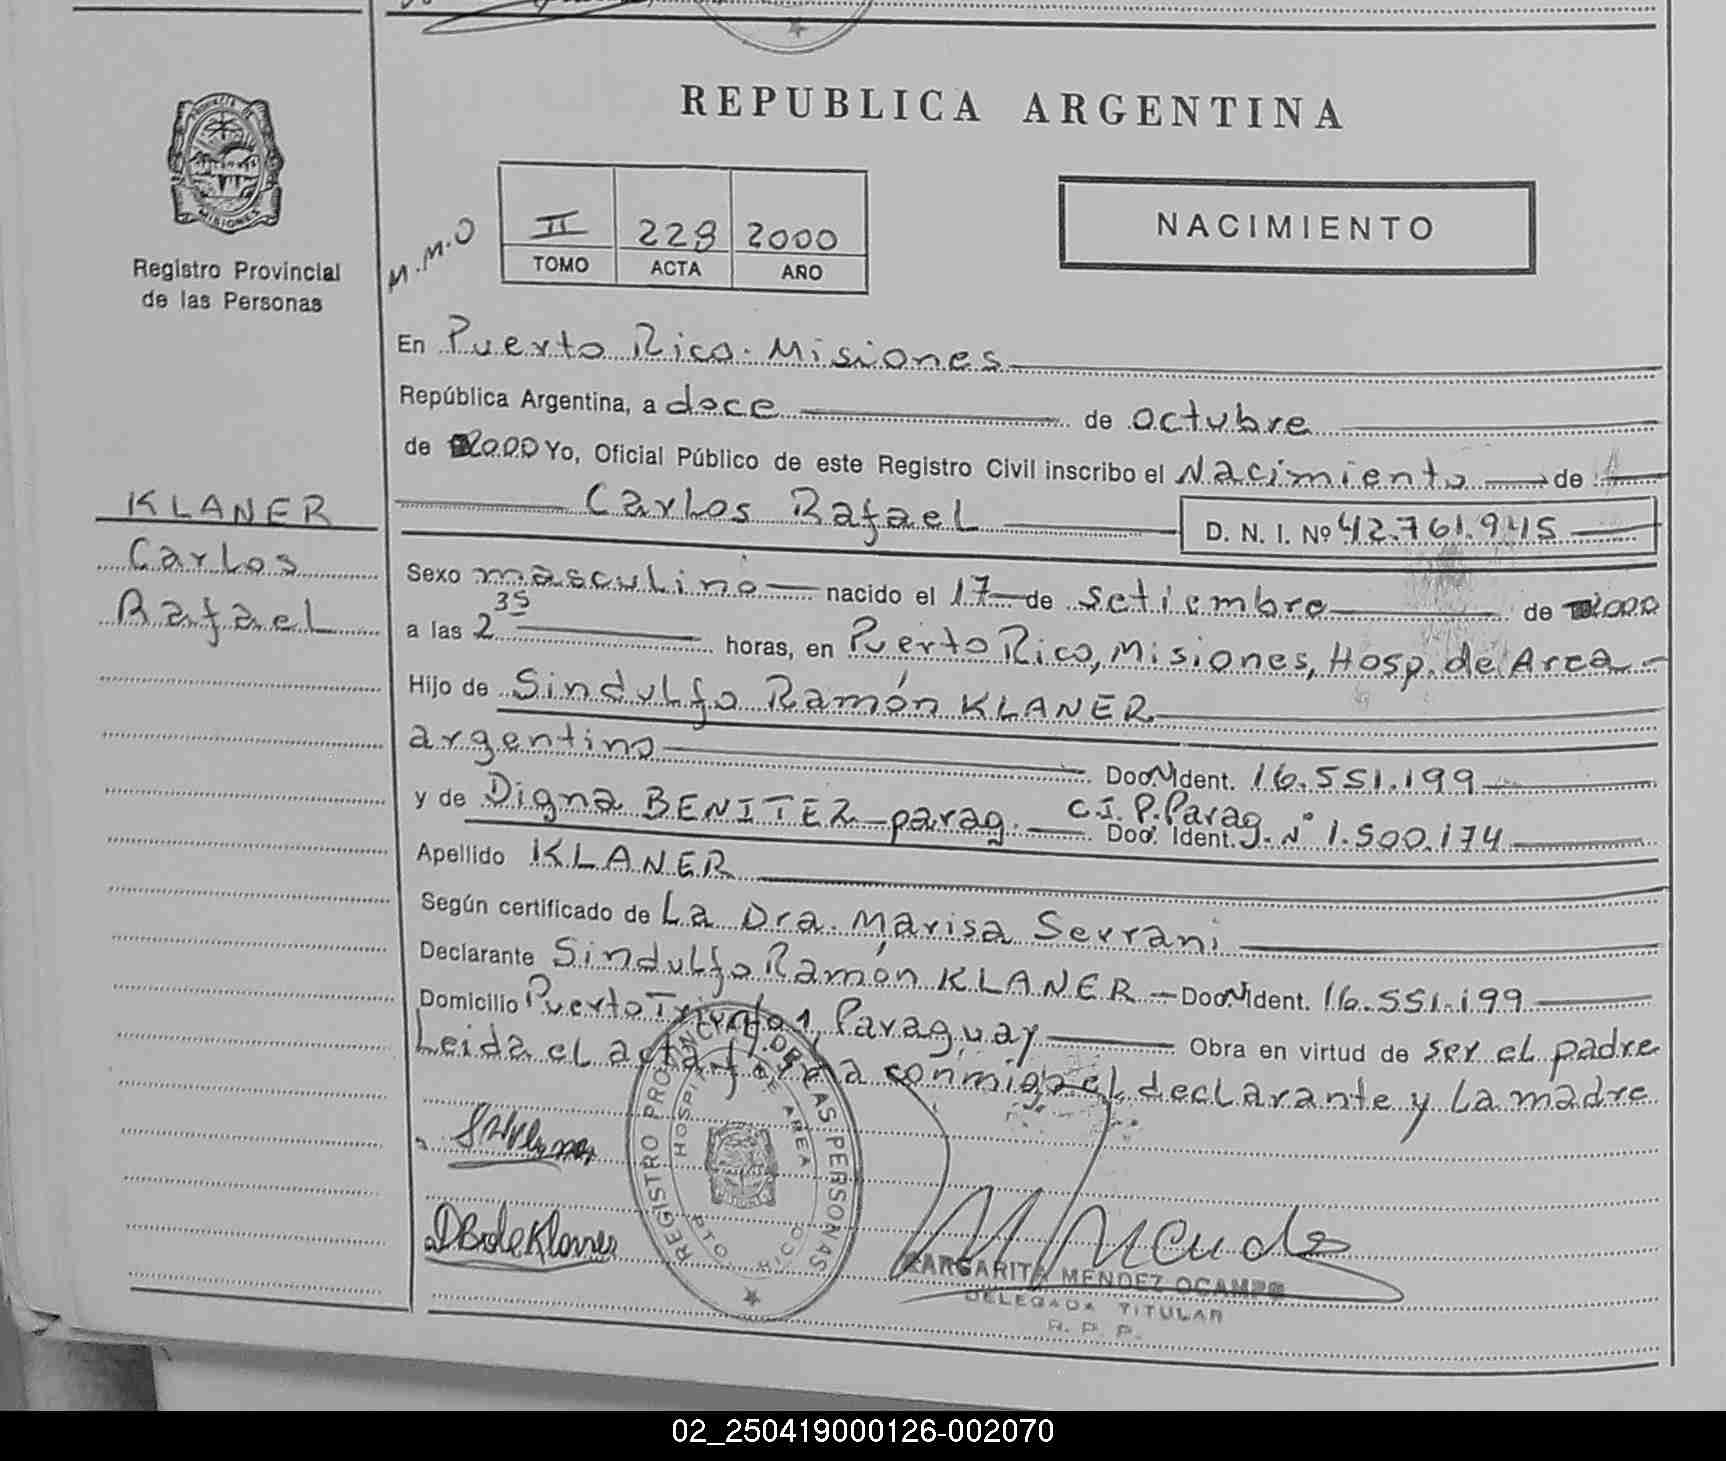 REPUBLICA ARGENTINA
MISIONES
Registro Provincial
de las Personas
M.M.O
II 229 2000
TOMO ACTA AÑO
NACIMIENTO
En Puerto Rico. Misiones
República Argentina, a doce de octubre
de 2000 Yo, Oficial Público de este Registro Civil inscribo el Nacimiento de
Carlos Rafael D. N. I. Nº 42.761.945
KLANER
Carlos
Rafael
Sexo masculino nacido el 17 de setiembre de 2000
a las 2 35 horas, en Puerto Rico, Misiones, Hosp. de Area
Hijo de Sindulfo Ramón KLANER
argentino Doc. Ident. 16.551.199
y de Digna BENITEZ parag. C.I. P. Parag. Nº Doc. Ident. 1.500.174
Apellido KLANER
Según certificado de La Dra. Marisa Serrani
Declarante Sindulfo Ramón KLANER Doc. Ident. 16.551.199
Domicilio Puerto Triunfo, Paraguay Obra en virtud de ser el padre
Leida el acta firma conmigo el declarante y la madre
REGISTRO PROVINCIAL DE LAS PERSONAS
HOSPITAL DE AREA
PTO. RICO
DB de Klaner
M Mendez
MARGARITA MENDEZ OCAMPO
DELEGADA TITULAR
R. P. P.
02_250419000126-002070